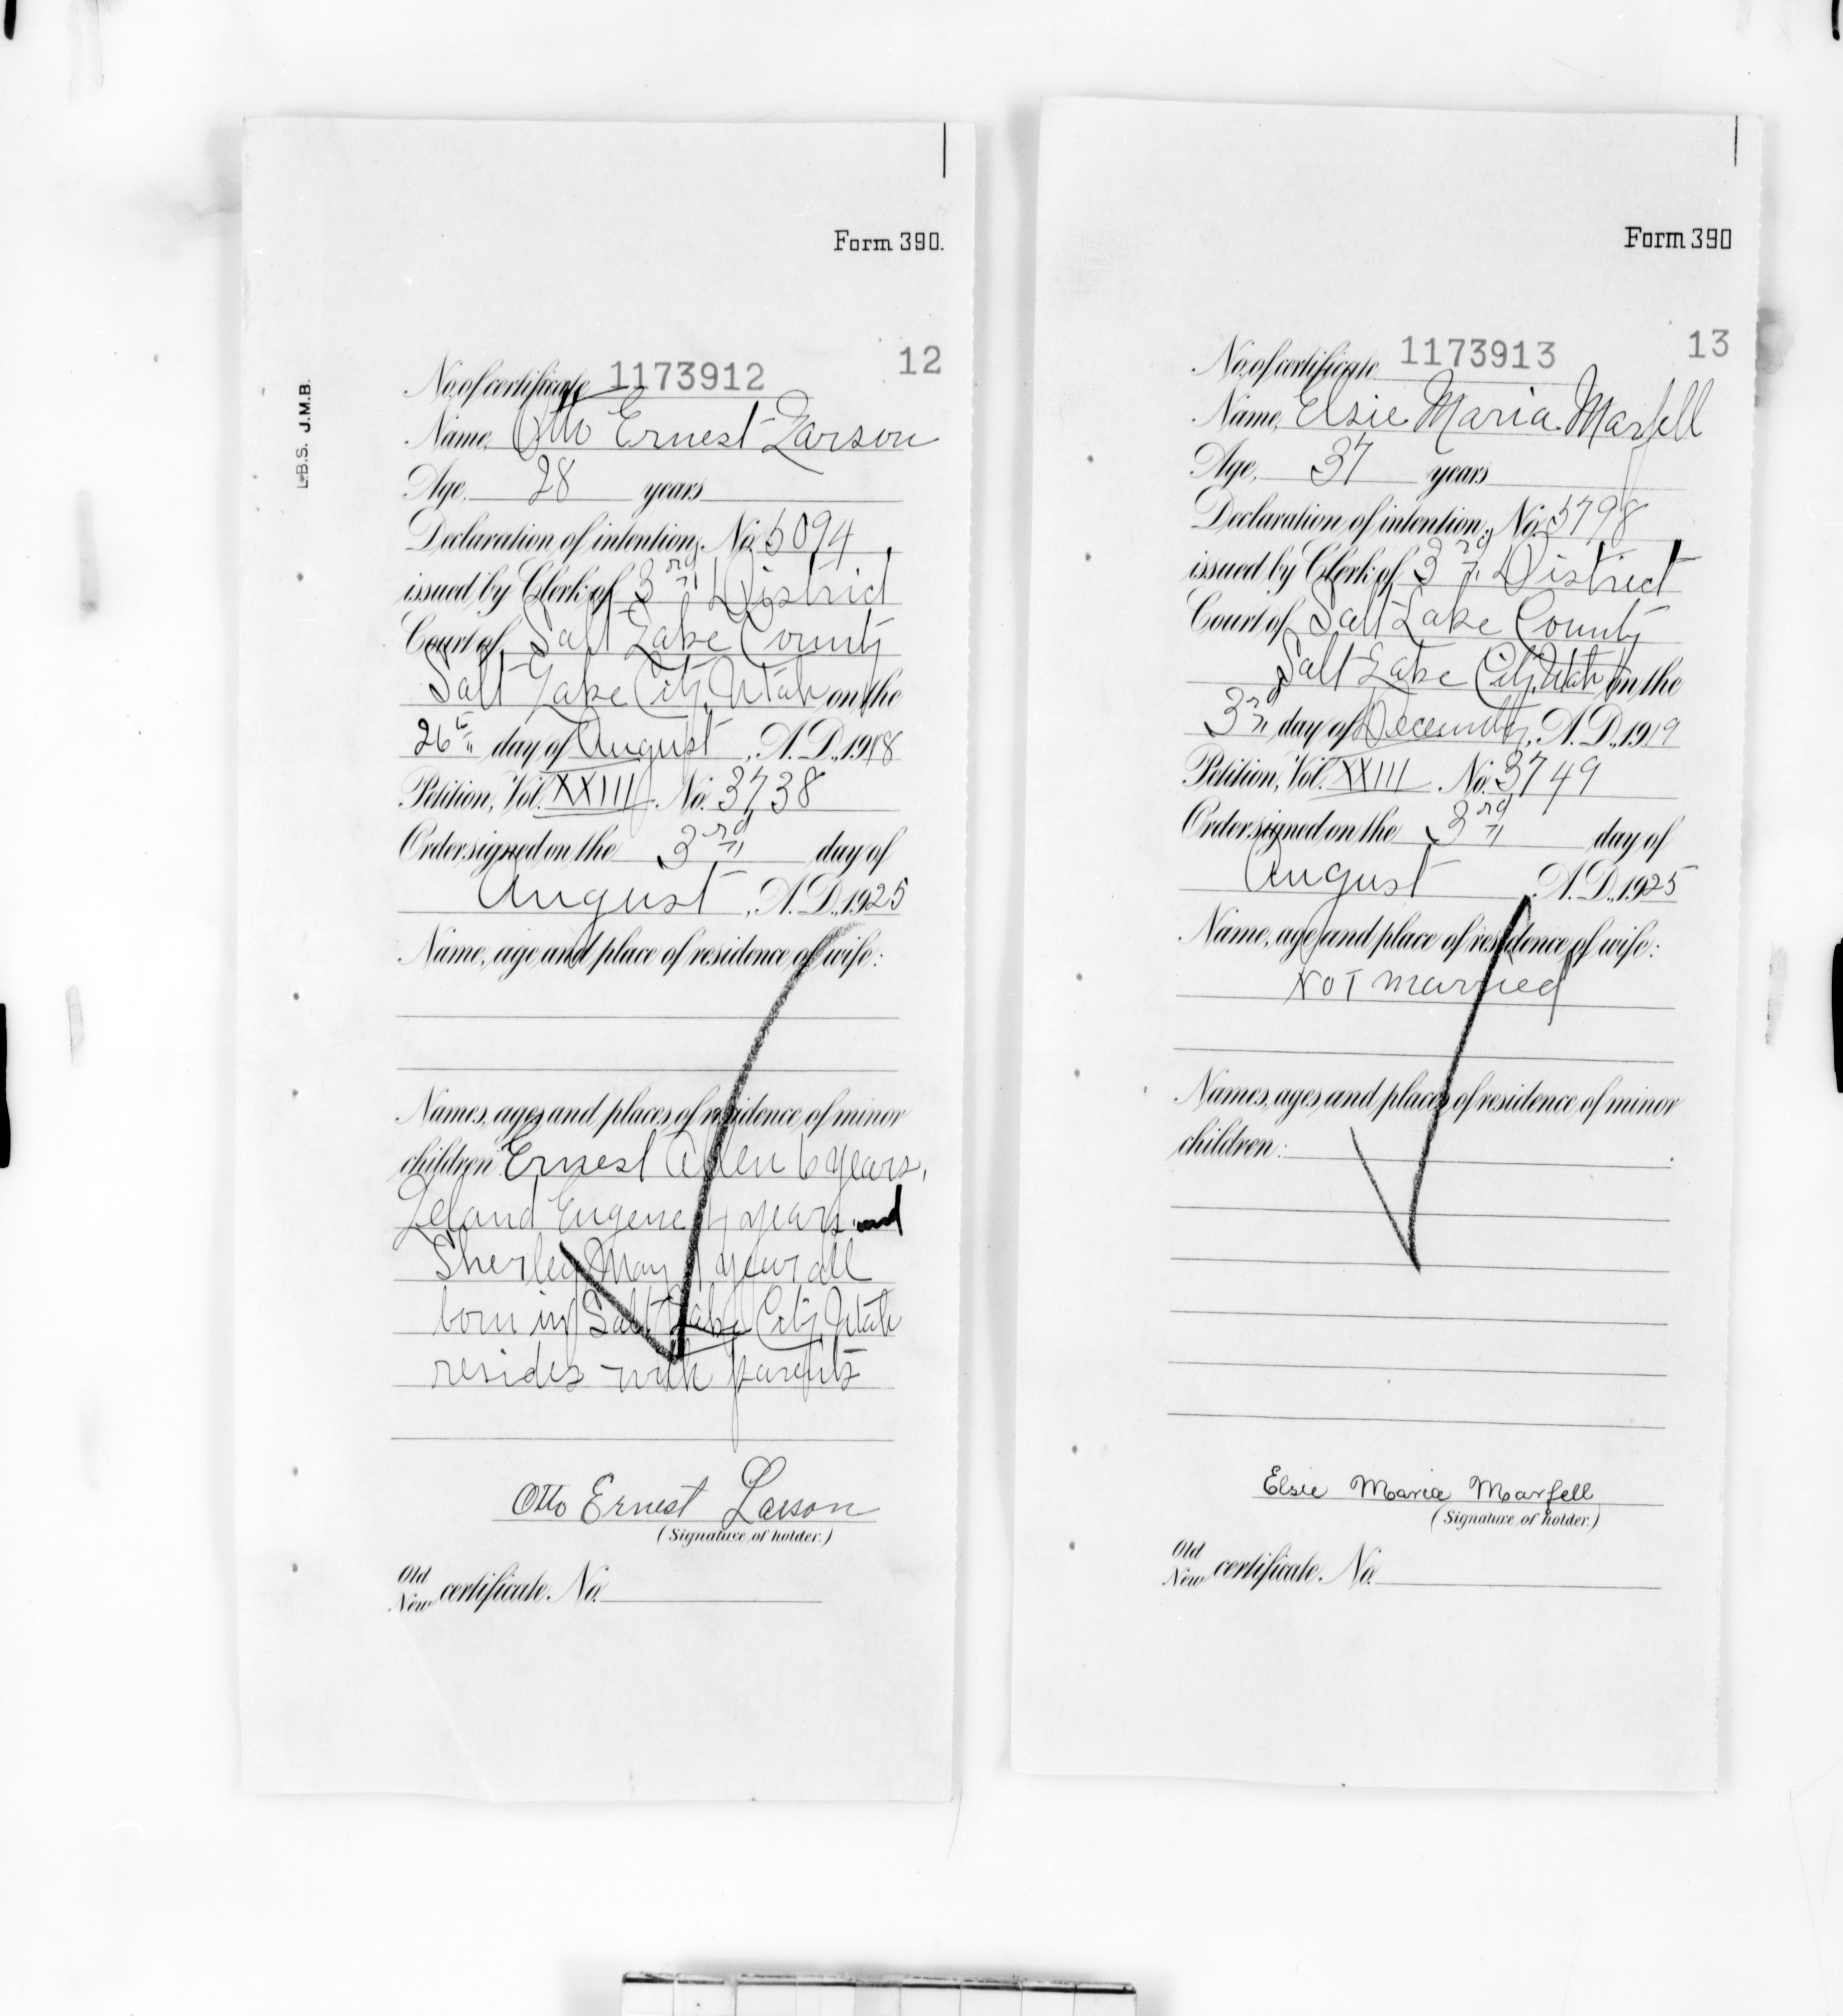 Form 390.
L.B.S. J.M.B.
12
No. of certificate, 1173912
Name, Otto Ernest Larson
Age, 28 years
Declaration of intention, No. 5094,
issued by Clerk of 3rd District
Court of, Salt Lake County
Salt Lake City, Utah on the
26th day of August, A.D., 1918
Petition, Vol. XXIII. No. 3738
Order signed on the 3rd day of
August, A.D., 1925
Name, age, and place of residence of wife:
Names, ages and places of residence of minor
children: Ernest Allen 6 years,
Leland Eugene 4 years and
Sherley May 1 year all
born in Salt Lake City, Utah
resides with parents
Otto Ernest Larson
(Signature of holder.)
Old
New certificate. No.
Form 390
13
No. of certificate. 1173913
Name, Elsie Maria Marfell
Age, 37 years
Declaration of intention, No. 5798
issued by Clerk of 3rd District
Court of, Salt Lake County
Salt Lake City, Utah on the
3rd day of December, A.D., 1919
Petition, Vol. XXIII. No. 3749
Order signed on the 3rd day of
August, A.D., 1925
Name, age, and place of residence of wife:
Not married
Names, ages, and places of residence of minor
children:
Elsie Maria Marfell
(Signature of holder.)
Old
New certificate. No.